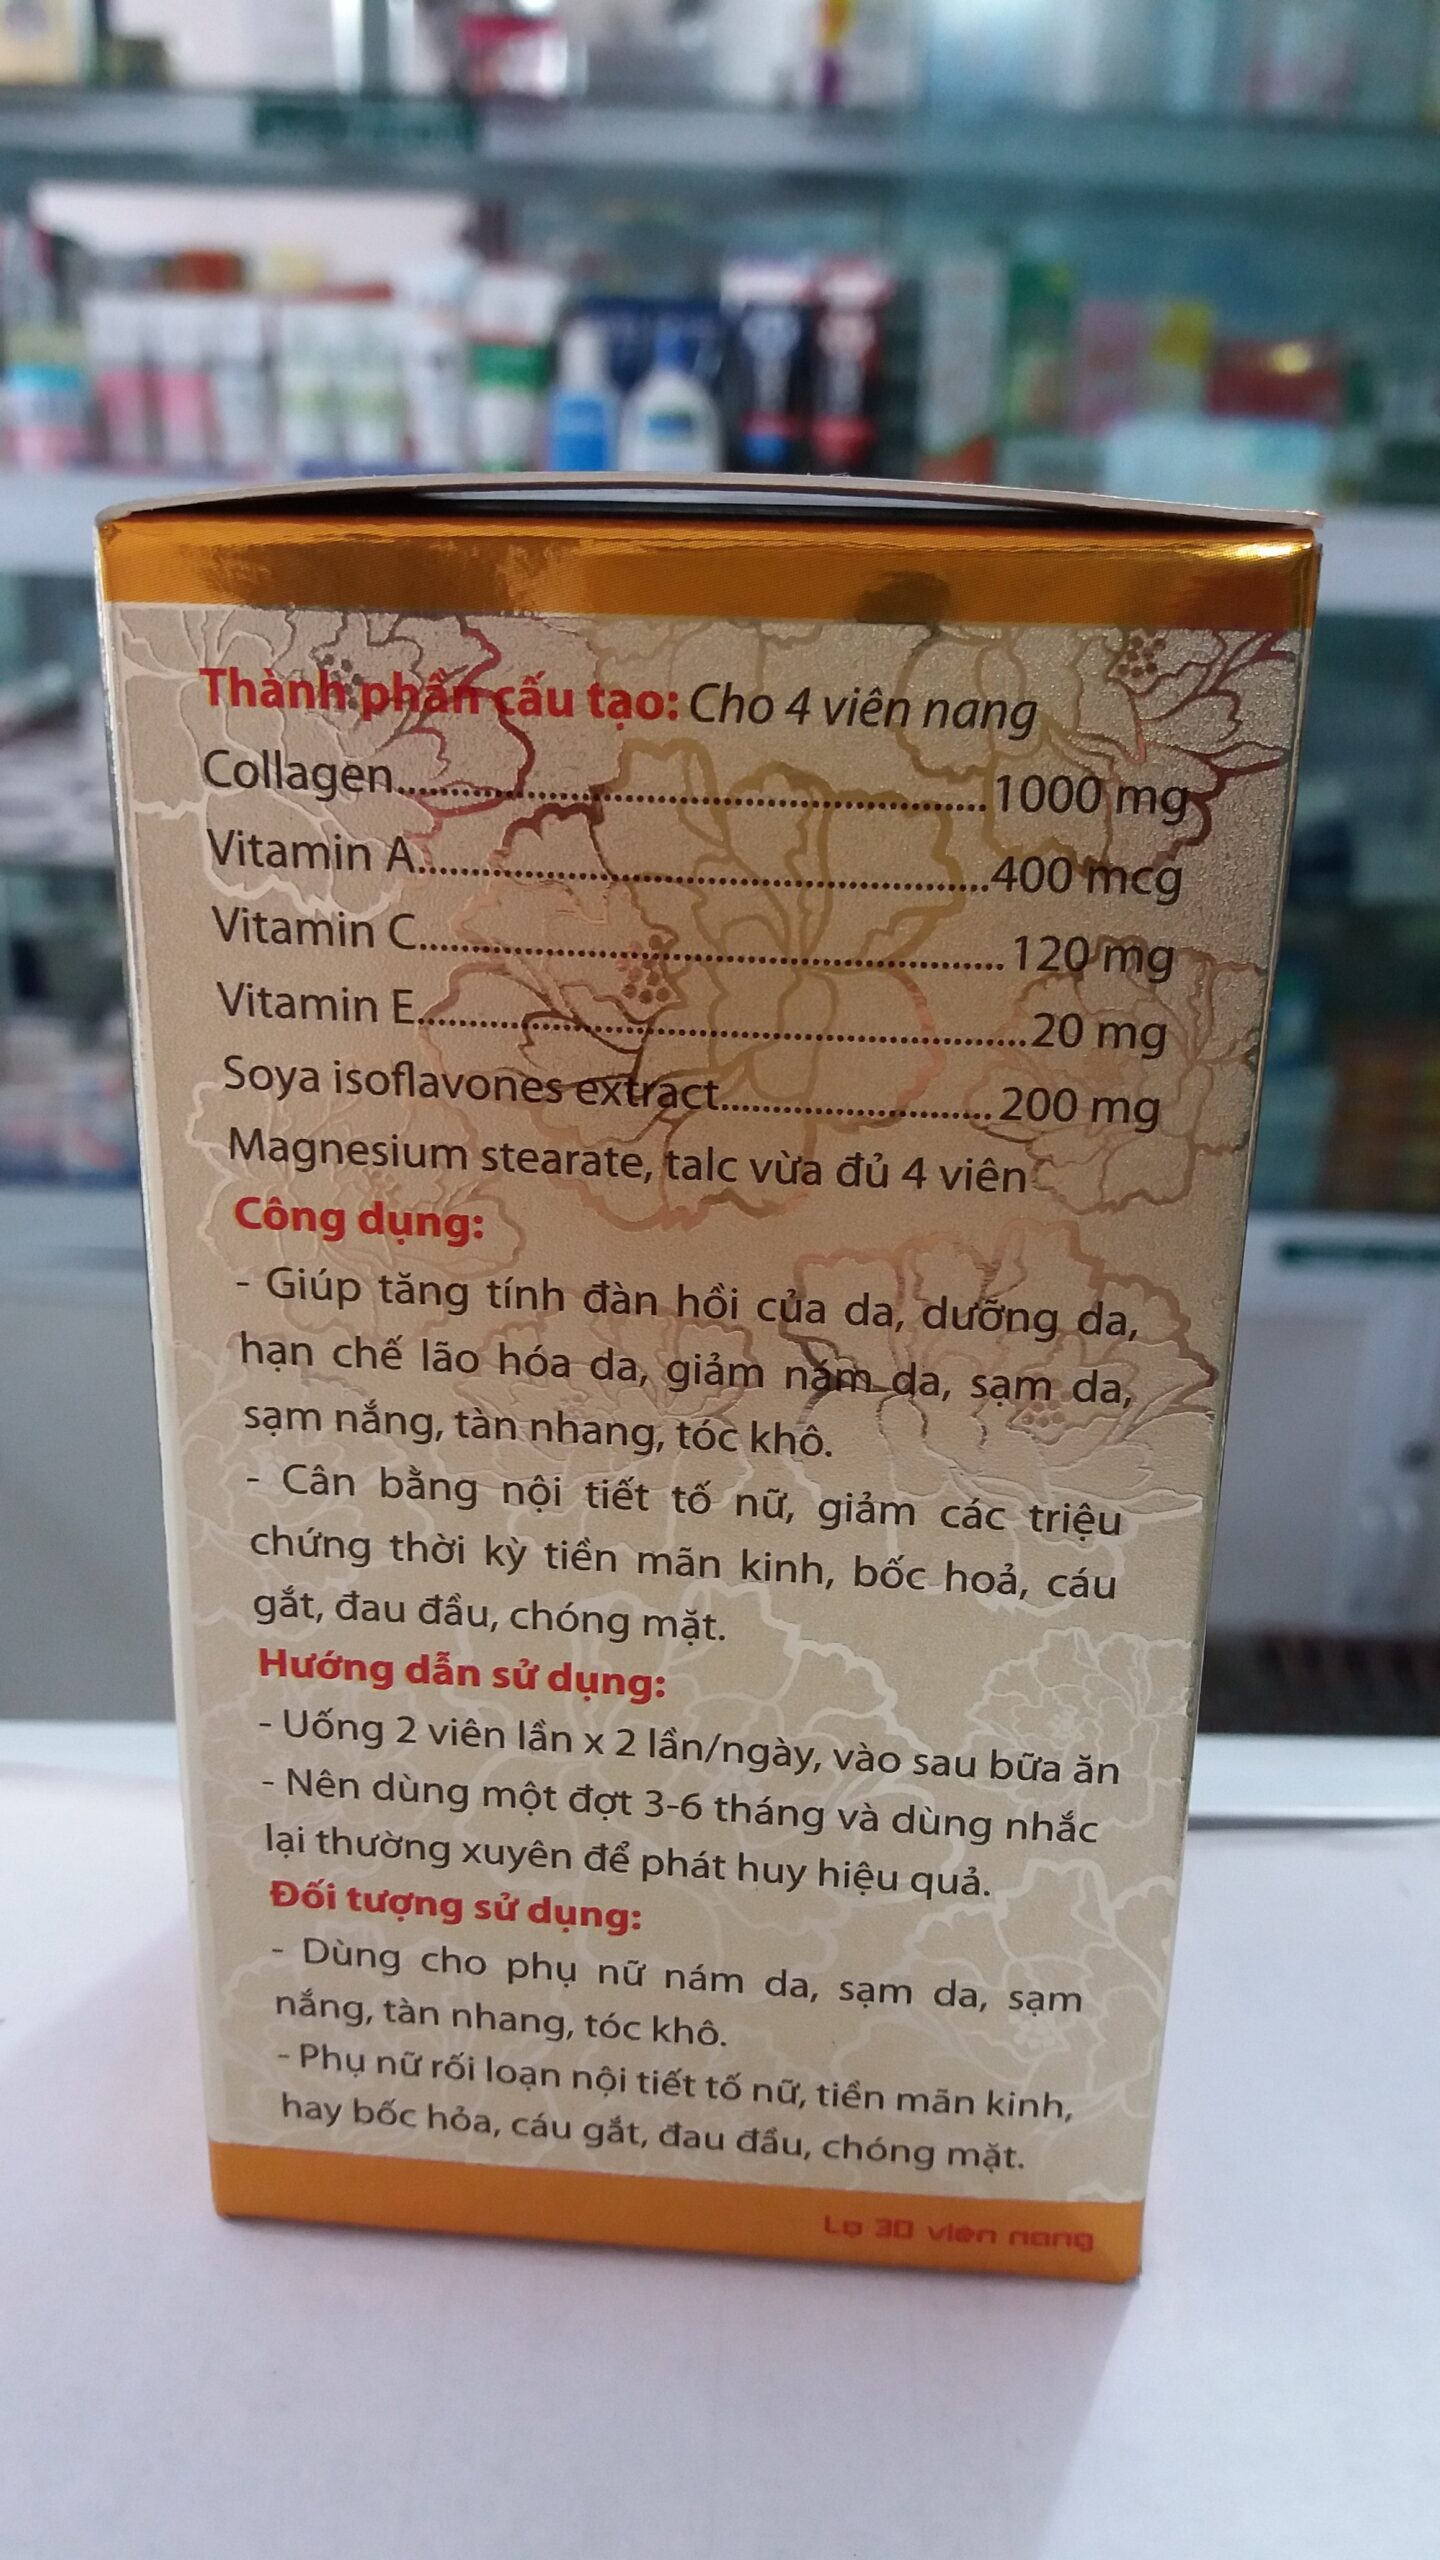 Thành phần cấu tạo: Cho 4 viên nang
Collagen..........................................................1000 mg
Vitamin A.........................................................400 mcg
Vitamin C..........................................................120 mg
Vitamin E............................................................20 mg
Soya isoflavones extract...........................200 mg
Magnesium stearate, talc vừa đủ 4 viên
Công dụng:
- Giúp tăng tính đàn hồi của da, dưỡng da,
hạn chế lão hóa da, giảm nám da, sạm da,
sạm nắng, tàn nhang, tóc khô.
- Cân bằng nội tiết tố nữ, giảm các triệu
chứng thời kỳ tiền mãn kinh, bốc hoả, cáu
gắt, đau đầu, chóng mặt.
Hướng dẫn sử dụng:
- Uống 2 viên lần x 2 lần/ngày, vào sau bữa ăn
- Nên dùng một đợt 3-6 tháng và dùng nhắc
lại thường xuyên để phát huy hiệu quả.
Đối tượng sử dụng:
- Dùng cho phụ nữ nám da, sạm da, sạm
nắng, tàn nhang, tóc khô.
- Phụ nữ rối loạn nội tiết tố nữ, tiền mãn kinh,
hay bốc hỏa, cáu gắt, đau đầu, chóng mặt.
Lọ 30 viên nang